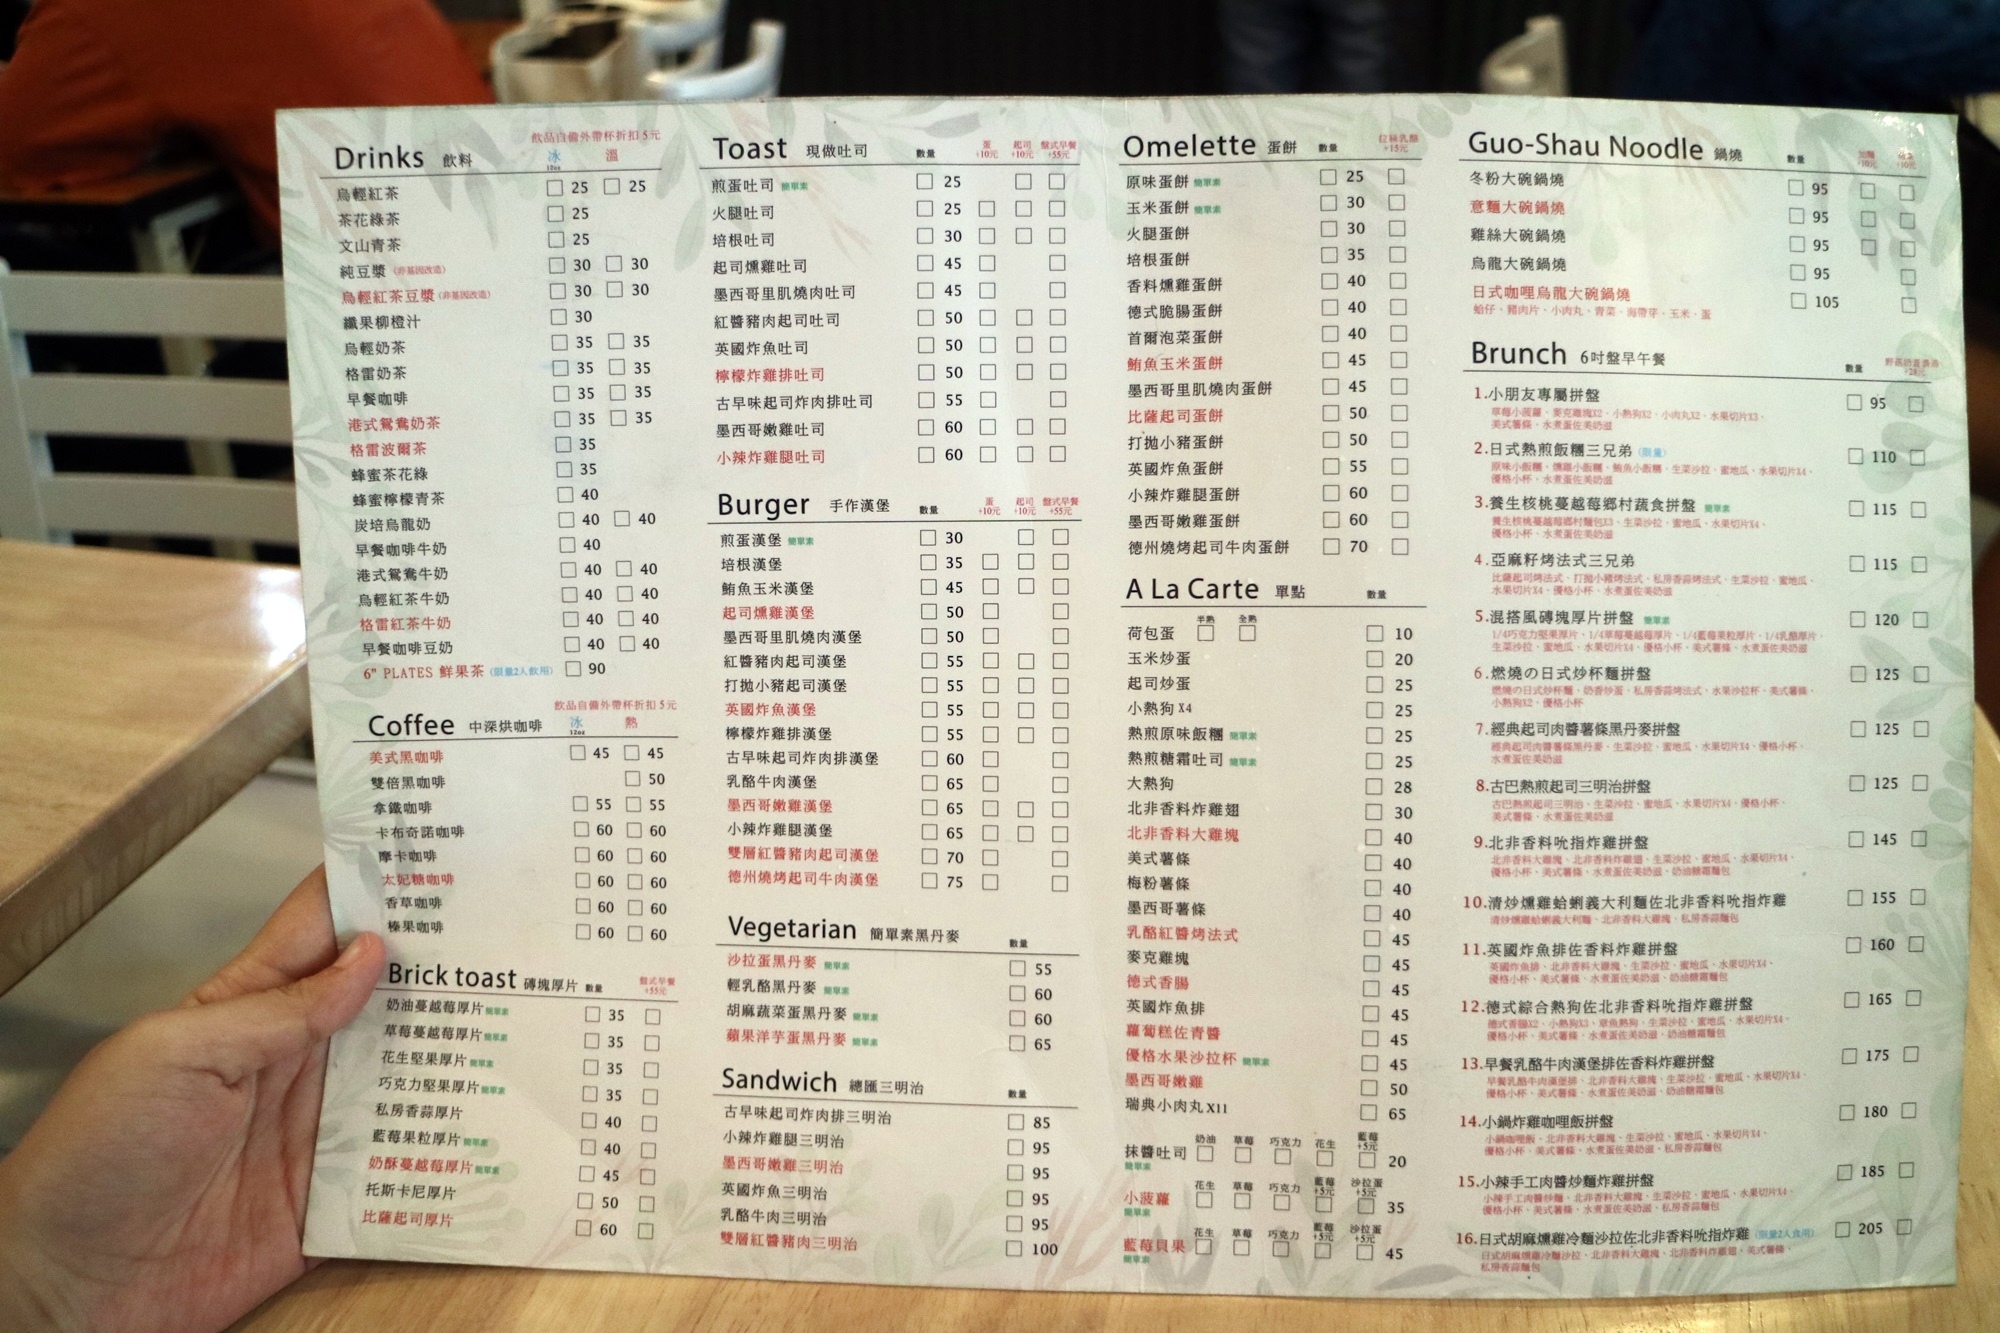 Drinks 飲料
飲品自備外帶杯折扣5元
冰 12oz 溫
烏輕紅茶 25 25
茶花綠茶 25
文山青茶 25
純豆漿 (非基因改造) 30 30
烏輕紅茶豆漿 (非基因改造) 30 30
纖果柳橙汁 30
烏輕奶茶 35 35
格雷奶茶 35 35
早餐咖啡 35 35
港式鴛鴦奶茶 35 35
格雷波爾茶 35
蜂蜜茶花綠 35
蜂蜜檸檬青茶 40
炭培烏龍奶 40 40
早餐咖啡牛奶 40
港式鴛鴦牛奶 40 40
烏輕紅茶牛奶 40 40
格雷紅茶牛奶 40 40
早餐咖啡豆奶 40 40
6" PLATES 鮮果茶 (限量2人飲用) 90
Coffee 中深烘咖啡
飲品自備外帶杯折扣5元
冰 12oz 熱
美式黑咖啡 45 45
雙倍黑咖啡 50
拿鐵咖啡 55 55
卡布奇諾咖啡 60 60
摩卡咖啡 60 60
太妃糖咖啡 60 60
香草咖啡 60 60
榛果咖啡 60 60
Brick toast 磚塊厚片 數量 盤式早餐 +55元
奶油蔓越莓厚片 簡單素 35
草莓蔓越莓厚片 簡單素 35
花生堅果厚片 簡單素 35
巧克力堅果厚片 簡單素 35
私房香蒜厚片 40
藍莓果粒厚片 簡單素 40
奶酥蔓越莓厚片 簡單素 45
托斯卡尼厚片 50
比薩起司厚片 60
Toast 現做吐司 數量 蛋 +10元 起司 +10元 盤式早餐 +55元
煎蛋吐司 簡單素 25
火腿吐司 25
培根吐司 30
起司燻雞吐司 45
墨西哥里肌燒肉吐司 45
紅醬豬肉起司吐司 50
英國炸魚吐司 50
檸檬炸雞排吐司 50
古早味起司炸肉排吐司 55
墨西哥嫩雞吐司 60
小辣炸雞腿吐司 60
Burger 手作漢堡 數量 蛋 +10元 起司 +10元 盤式早餐 +55元
煎蛋漢堡 簡單素 30
培根漢堡 35
鮪魚玉米漢堡 45
起司燻雞漢堡 50
墨西哥里肌燒肉漢堡 50
紅醬豬肉起司漢堡 55
打拋小豬起司漢堡 55
英國炸魚漢堡 55
檸檬炸雞排漢堡 55
古早味起司炸肉排漢堡 60
乳酪牛肉漢堡 65
墨西哥嫩雞漢堡 65
小辣炸雞腿漢堡 65
雙層紅醬豬肉起司漢堡 70
德州燒烤起司牛肉漢堡 75
Vegetarian 簡單素黑丹麥 數量
沙拉蛋黑丹麥 簡單素 55
輕乳酪黑丹麥 簡單素 60
胡麻蔬菜蛋黑丹麥 簡單素 60
蘋果洋芋蛋黑丹麥 簡單素 65
Sandwich 總匯三明治 數量
古早味起司炸肉排三明治 85
小辣炸雞腿三明治 95
墨西哥嫩雞三明治 95
英國炸魚三明治 95
乳酪牛肉三明治 95
雙層紅醬豬肉三明治 100
Omelette 蛋餅 數量 拉絲乳酪 +15元
原味蛋餅 簡單素 25
玉米蛋餅 簡單素 30
火腿蛋餅 30
培根蛋餅 35
香料燻雞蛋餅 40
德式脆腸蛋餅 40
首爾泡菜蛋餅 40
鮪魚玉米蛋餅 45
墨西哥里肌燒肉蛋餅 45
比薩起司蛋餅 50
打拋小豬蛋餅 50
英國炸魚蛋餅 55
小辣炸雞腿蛋餅 60
墨西哥嫩雞蛋餅 60
德州燒烤起司牛肉蛋餅 70
A La Carte 單點 數量
荷包蛋 半熟 全熟 10
玉米炒蛋 20
起司炒蛋 25
小熱狗 X4 25
熱煎原味飯糰 簡單素 25
熱煎糖霜吐司 簡單素 25
大熱狗 28
北非香料炸雞翅 30
北非香料大雞塊 40
美式薯條 40
梅粉薯條 40
墨西哥薯條 40
乳酪紅醬烤法式 45
麥克雞塊 45
德式香腸 45
英國炸魚排 45
蘿蔔糕佐青醬 45
優格水果沙拉杯 簡單素 45
墨西哥嫩雞 50
瑞典小肉丸 X11 65
抹醬吐司 簡單素 奶油 草莓 巧克力 花生 藍莓 +5元 20
小菠蘿 簡單素 花生 草莓 巧克力 藍莓 +5元 沙拉蛋 +5元 35
藍莓貝果 簡單素 花生 草莓 巧克力 藍莓 +5元 沙拉蛋 +5元 45
Guo-Shau Noodle 鍋燒 數量
冬粉大碗鍋燒 95
意麵大碗鍋燒 95
雞絲大碗鍋燒 95
烏龍大碗鍋燒 95
日式咖哩烏龍大碗鍋燒 105
蛤仔、豬肉片、小肉丸、青菜、海帶芽、玉米、蛋
Brunch 6吋盤早午餐 數量
1.小朋友專屬拼盤 95
草莓小菠蘿、麥克雞塊X2、小熱狗X2、小肉丸X2、水果切片X3、
美式薯條、水煮蛋佐美奶滋
2.日式熱煎飯糰三兄弟 (限量) 110
原味小飯糰、燻雞小飯糰、鮪魚小飯糰、生菜沙拉、蜜地瓜、水果切片X4、
優格小杯、水煮蛋佐美奶滋
3.養生核桃蔓越莓鄉村蔬食拼盤 簡單素 115
養生核桃蔓越莓鄉村麵包X3、生菜沙拉、蜜地瓜、水果切片X4、
優格小杯、水煮蛋佐美奶滋
4.亞麻籽烤法式三兄弟 115
比薩起司烤法式、打拋小豬烤法式、私房香蒜烤法式、生菜沙拉、蜜地瓜、
水果切片X4、優格小杯、水煮蛋佐美奶滋
5.混搭風磚塊厚片拼盤 簡單素 120
1/4巧克力堅果厚片、1/4草莓蔓越莓厚片、1/4藍莓果粒厚片、1/4乳酪厚片、
生菜沙拉、蜜地瓜、水果切片X4、優格小杯、美式薯條、水煮蛋佐美奶滋
6.燃燒の日式炒杯麵拼盤 125
燃燒の日式炒杯麵、奶香炒蛋、私房香蒜烤法式、水果沙拉杯、美式薯條、
小熱狗X2、優格小杯
7.經典起司肉醬薯條黑丹麥拼盤 125
經典起司肉醬薯條黑丹麥、生菜沙拉、蜜地瓜、水果切片X4、優格小杯、
水煮蛋佐美奶滋
8.古巴熱煎起司三明治拼盤 125
古巴熱煎起司三明治、生菜沙拉、蜜地瓜、水果切片X4、優格小杯、
美式薯條、水煮蛋佐美奶滋
9.北非香料吮指炸雞拼盤 145
北非香料大雞塊、北非香料炸雞翅、生菜沙拉、蜜地瓜、水果切片X4、
優格小杯、美式薯條、水煮蛋佐美奶滋、奶油糖霜麵包
10.清炒燻雞蛤蜊義大利麵佐北非香料吮指炸雞 155
清炒燻雞蛤蜊義大利麵、北非香料大雞塊、私房香蒜麵包
11.英國炸魚排佐香料炸雞拼盤 160
英國炸魚排、北非香料大雞塊、生菜沙拉、蜜地瓜、水果切片X4、
優格小杯、美式薯條、水煮蛋佐美奶滋、奶油糖霜麵包
12.德式綜合熱狗佐北非香料吮指炸雞拼盤 165
德式香腸X2、小熱狗X3、章魚熱狗、生菜沙拉、蜜地瓜、水果切片X4、
優格小杯、北非香料大雞塊、水煮蛋佐美奶滋、奶油糖霜麵包
13.早餐乳酪牛肉漢堡排佐香料炸雞拼盤 175
早餐乳酪牛肉漢堡排、北非香料大雞塊、生菜沙拉、蜜地瓜、水果切片X4、
優格小杯、美式薯條、水煮蛋佐美奶滋、奶油糖霜麵包
14.小鍋炸雞咖哩飯拼盤 180
小鍋咖哩飯、北非香料大雞塊、生菜沙拉、蜜地瓜、水果切片X4、
優格小杯、美式薯條、水煮蛋佐美奶滋、私房香蒜麵包
15.小辣手工肉醬炒麵炸雞拼盤 185
小辣手工肉醬炒麵、北非香料大雞塊、生菜沙拉、蜜地瓜、水果切片X4、
優格小杯、美式薯條、水煮蛋佐美奶滋、私房香蒜麵包
16.日式胡麻燻雞冷麵沙拉佐北非香料吮指炸雞 (限量2人食用) 205
日式胡麻燻雞冷麵沙拉、北非香料大雞塊、北非香料炸雞翅、美式薯條、
私房香蒜麵包